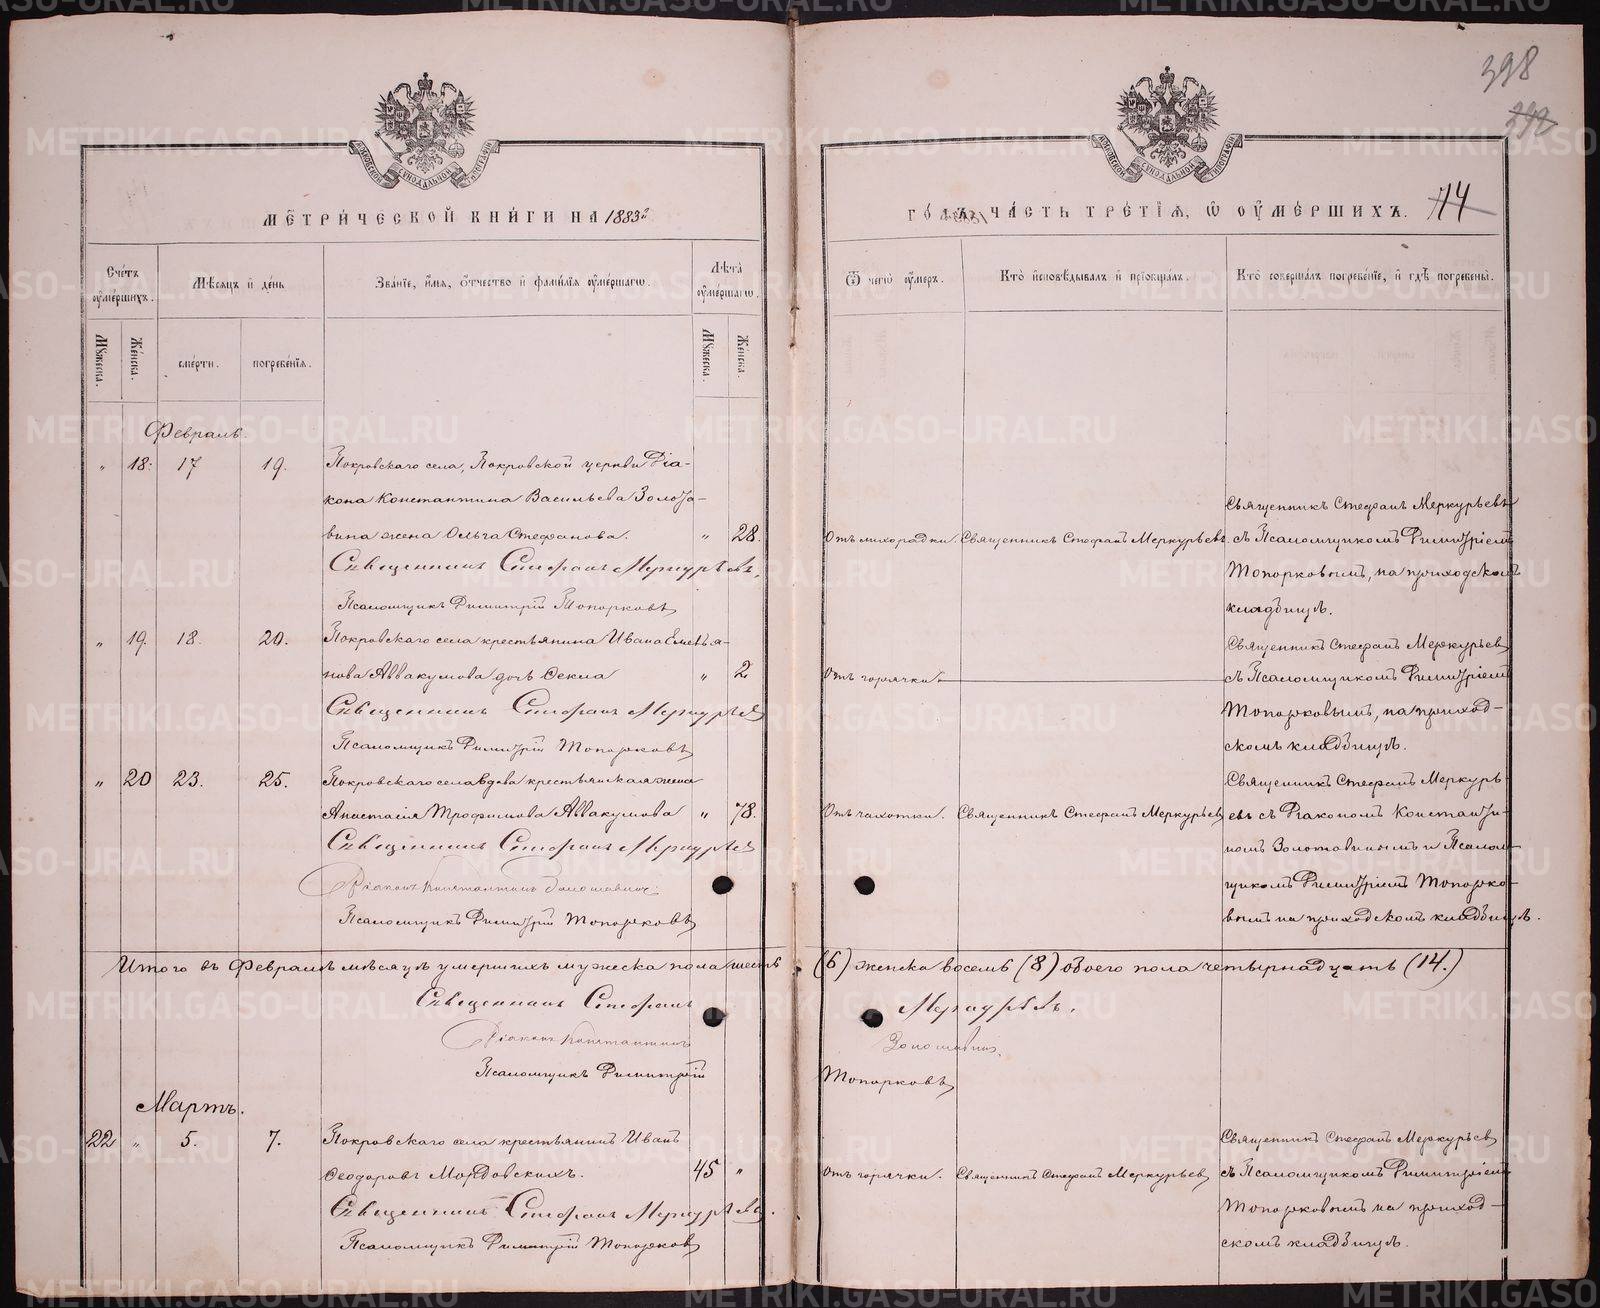 398
392
МОСКОВСКОЙ СѴНОДАЛЬНОЙ ТИПОГРАФІИ
МОСКОВСКОЙ СѴНОДАЛЬНОЙ ТИПОГРАФІИ
МЕТРИЧЕСКОЙ КНИГИ НА 1883й
ГОДЪ, ЧАСТЬ ТРЕТІЯ, Ѿ ОУМЕРШИХЪ. 14
Счетъ оумершихъ.
Мѣсяцъ и день
Званіе, имя, отчество и фамилія оумершагω.
Лѣта оумершагω.
Ѿ чегω оумеръ.
Кто исповѣдывалъ и пріобщалъ.
Кто совершалъ погребеніе, и гдѣ погребены.
Мужеска.
Женска.
смерти.
погребенія.
Мужеска.
Женска.
Февраль.
" 18. 17 19. Покровскаго села, Покровской церкви Діа-
кона Константина Васильева Золота-
вина жена Ольга Стефанова. " 28. Отъ лихорадки. Священникъ Стефанъ Меркурьевъ.
Священникъ Стефанъ Меркурьевъ
съ Псаломщикомъ Димитріемъ
Топорковымъ, на приходскомъ
кладбищѣ.
Священникъ Стефанъ Меркурьевъ.
Псаломщикъ Димитрій Топорковъ
" 19. 18. 20. Покровскаго села крестьянина Ивана Емелья-
нова Аввакумова дочь Фекла " 2 Отъ горячки.
Священникъ Стефанъ Меркурьевъ
съ Псаломщикомъ Димитріемъ
Топорковымъ, на приход-
скомъ кладбищѣ.
Священникъ Стефанъ Меркурьевъ
Псаломщикъ Димитрій Топорковъ
" 20 23. 25. Покровскаго села вдова крестьянская жена
Анастасія Трофимова Аввакумова " 78. Отъ чахотки. Священникъ Стефанъ Меркурьевъ
Священникъ Стефанъ Меркурь-
евъ съ Діакономъ Константи-
номъ Золотавинымъ и Псалом-
щикомъ Димитріемъ Топорко-
вымъ на приходскомъ кладбищѣ.
Священникъ Стефанъ Меркурьевъ
Діаконъ Константинъ Золотавинъ
Псаломщикъ Димитрій Топорковъ
Итого въ Февралѣ мѣсяцѣ умершихъ мужеска пола шесть (6) женска восемь (8) обоего пола четырнадцать (14.)
Священникъ Стефанъ Меркурьевъ.
Діаконъ Константинъ Золотавинъ.
Псаломщикъ Димитрій Топорковъ
Мартъ.
22 " 5. 7. Покровскаго села крестьянинъ Иванъ
Феодоровъ Мордовскихъ. 45 " Отъ горячки. Священникъ Стефанъ Меркурьевъ
Священникъ Стефанъ Меркурьевъ
съ Псаломщикомъ Димитріемъ
Топорковымъ на приход-
скомъ кладбищѣ.
Священникъ Стефанъ Меркурьевъ.
Псаломщикъ Димитрій Топорковъ
METRIKI.GASO-URAL.RU